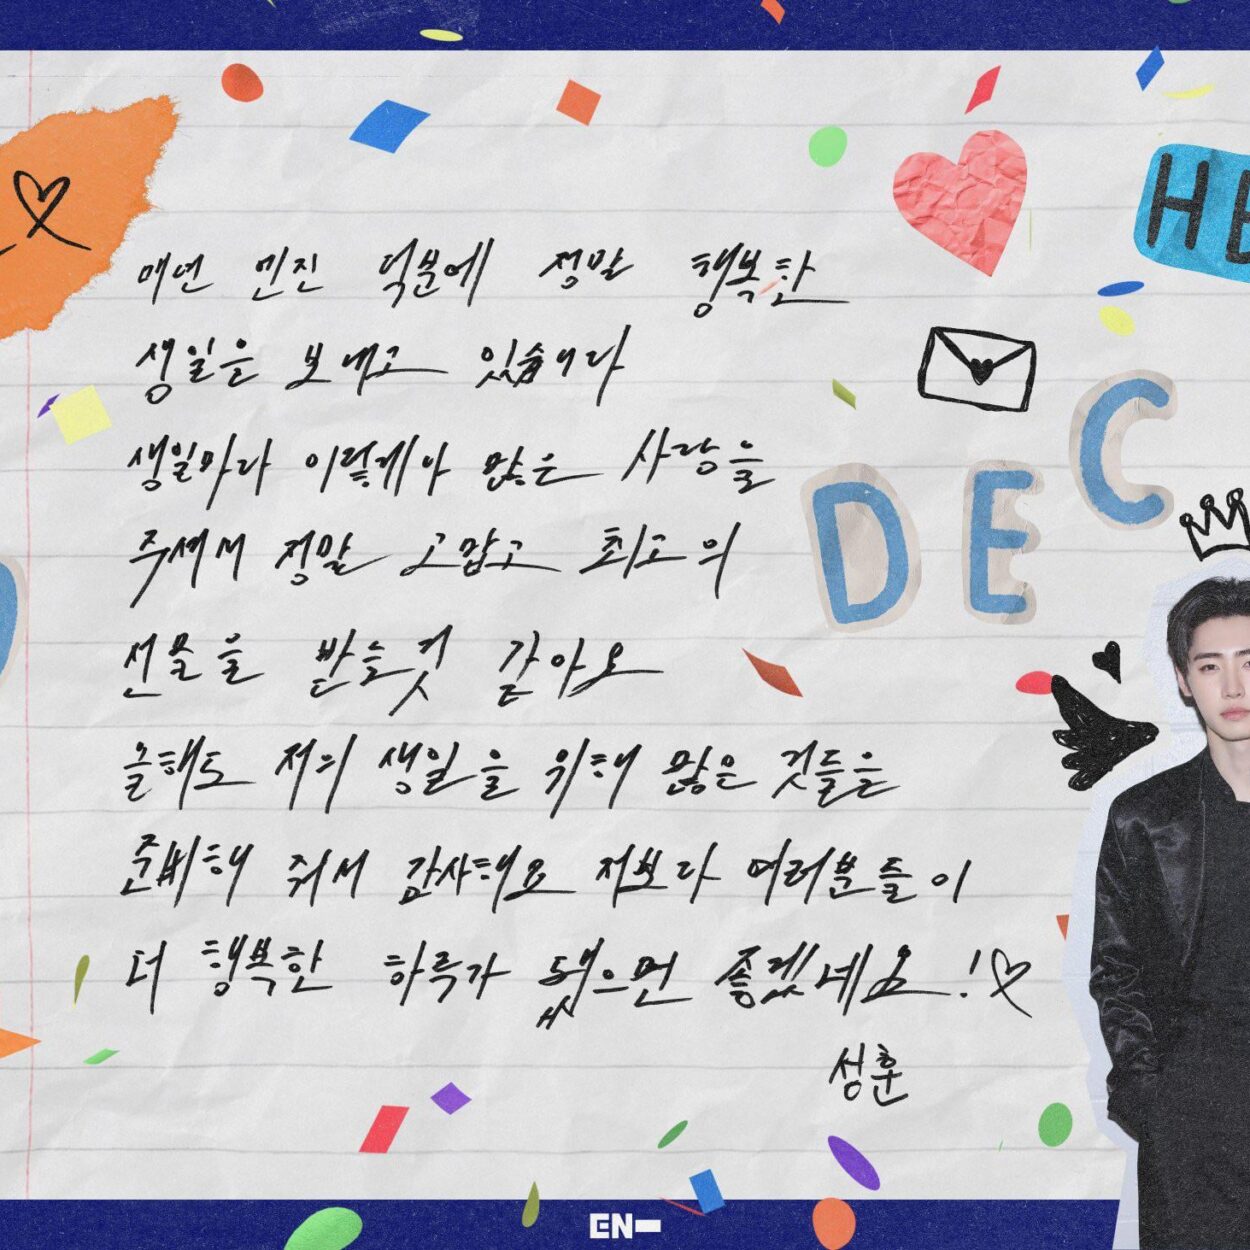 HE
매년 엔진 덕분에 정말 행복한
생일을 보내고 있습니다
생일마다 이렇게나 많은 사랑을
주셔서 정말 고맙고 최고의
선물을 받는것 같아요
올해도 저의 생일을 위해 많은 것들을
준비해 줘서 감사해요 저보다 여러분들이
더 행복한 하루가 됐으면 좋겠네요!♡
성훈
DEC
EN-